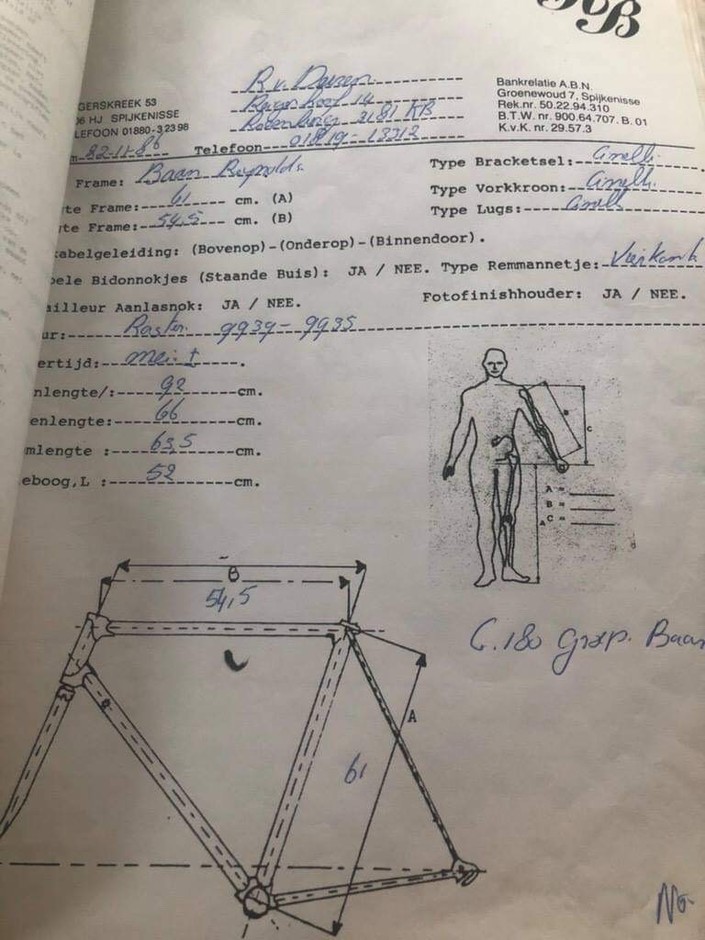 GERSKREEK 53
HJ SPIJKENISSE
LEFOON 01880-32398
Bankrelatie A.B.N.
Groenewoud 7, Spijkenisse
Rek.nr. 50.22.94.310
B.T.W. nr. 900.64.707. B. 01
K.v.K. nr. 29.57.3
R v. Duren
14
3181 KB
Telefoon 01819-13212
Frame: Baan Reynolds.
te Frame: 61 cm. (A)
te Frame: 54,5 cm. (B)
Type Bracketsel: Cinelli.
Type Vorkkroon: Cinelli.
Type Lugs: Cinelli
abelgeleiding: (Bovenop)-(Onderop)-(Binnendoor).
ele Bidonnokjes (Staande Buis): JA / NEE. Type Remmannetje: Vierkant
ailleur Aanlasnok: JA / NEE.
Fotofinishhouder: JA / NEE.
ur: 9939-9935
ertijd: mei
nlengte/: 92 cm.
enlengte: 66 cm.
mlengte : 63,5 cm.
eboog,L : 52 cm.
B
C
A =
B =
C =
A
B
54,5
C.180 Baan
A
61
No.